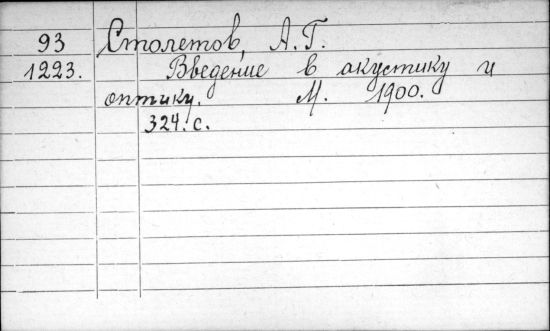 93 Столетов, А.Г.
1223. Введение в акустику и
оптику. М. 1900.
324. с.